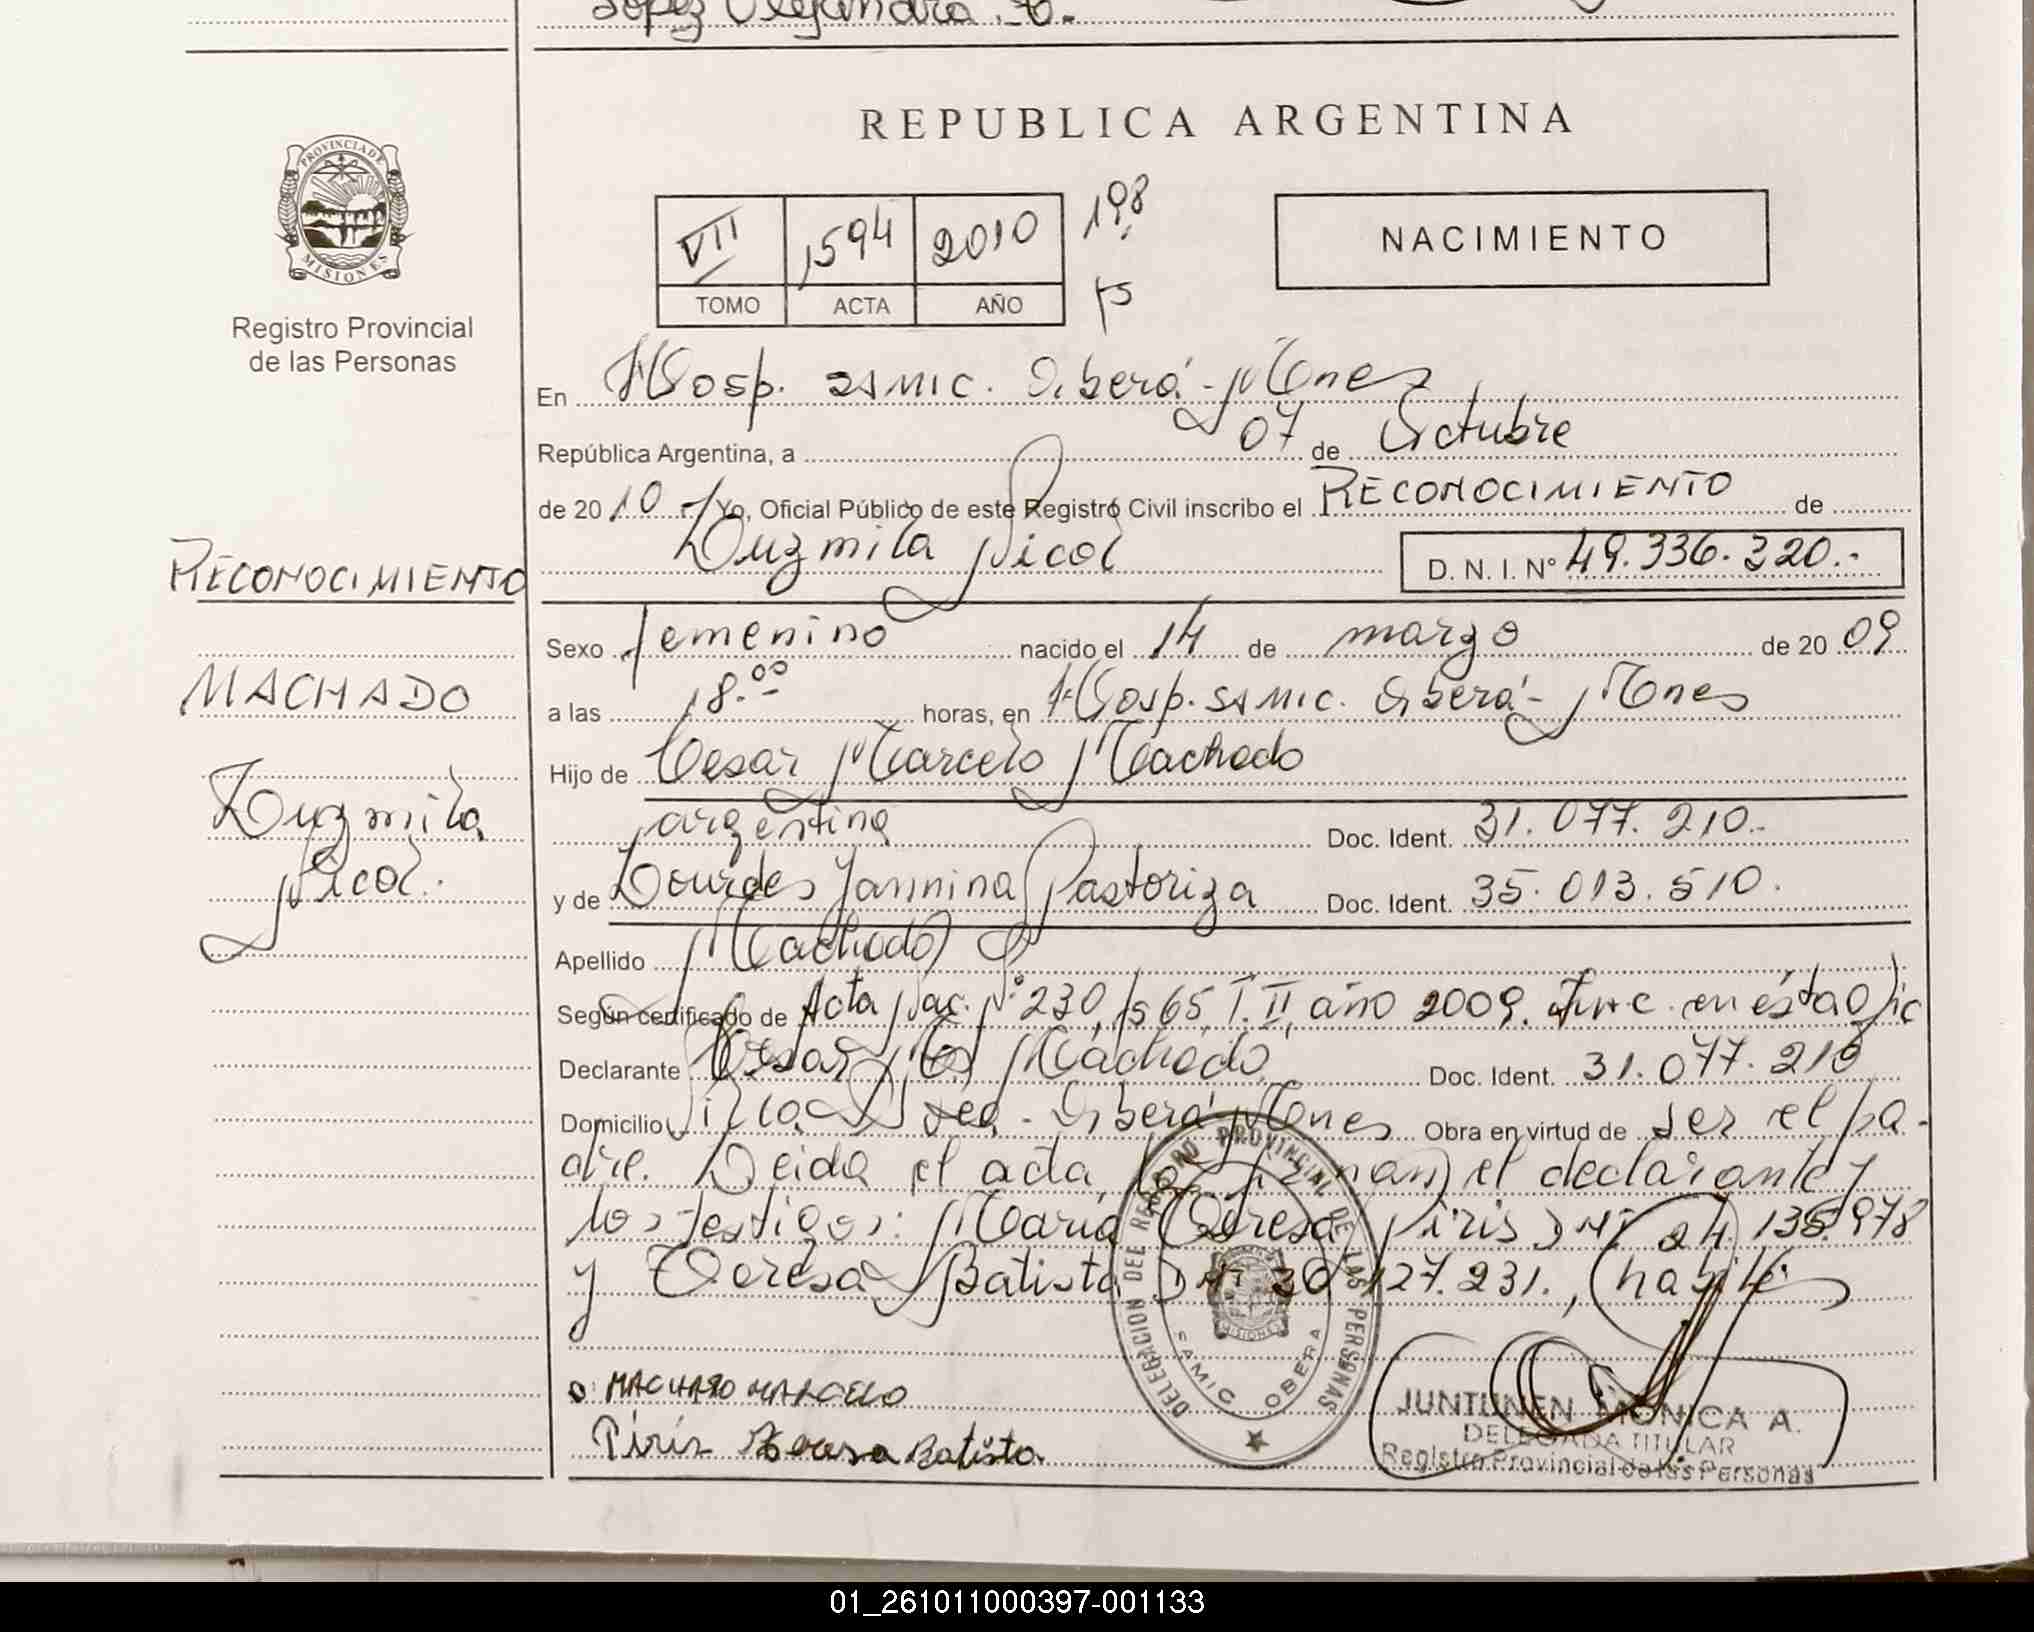 Lopez Alejandra
REPUBLICA ARGENTINA
PROVINCIA DE
MISIONES
Registro Provincial
de las Personas
VII 1594 2010 198
TOMO ACTA AÑO
NACIMIENTO
En Hosp. SAMIC. Oberá - Mnes
República Argentina, a 07 de Octubre
de 20 10 - Yo, Oficial Público de este Registro Civil inscribo el RECONOCIMIENTO de
Luzmila Nicol D. N. I. Nº 49.336.320.-
RECONOCIMIENTO
MACHADO
Luzmila
Nicol.
Sexo femenino nacido el 14 de marzo de 20 09
a las 18.00 horas, en Hosp. SAMIC. Oberá - Mnes
Hijo de Cesar Marcelo Machado
argentina Doc. Ident. 31.077.210.-
y de Lourdes Yannina Pastoriza Doc. Ident. 35.013.510.
Apellido Machado
Según certificado de Acta Nac. Nº 230, Fs 65 T. II, año 2009. Insc. en ésta Ofic
Declarante Cesar M. Machado Doc. Ident. 31.077.210
Domicilio Villa - Oberá Mnes Obra en virtud de ser el pa-
dre. Leida el acta, la firman el declarante y
los testigos: María Teresa Piris DNI 24.135.978
y Teresa Batista DNI 20.127.231., habil.
MACHADO MARCELO
Piris Teresa Batista
DELEGACION DEL REGISTRO PROVINCIAL DE LAS PERSONAS
MISIONES
SAMIC OBERA
JUNTUNEN MONICA A.
DELEGADA TITULAR
Registro Provincial de las Personas
01_261011000397-001133